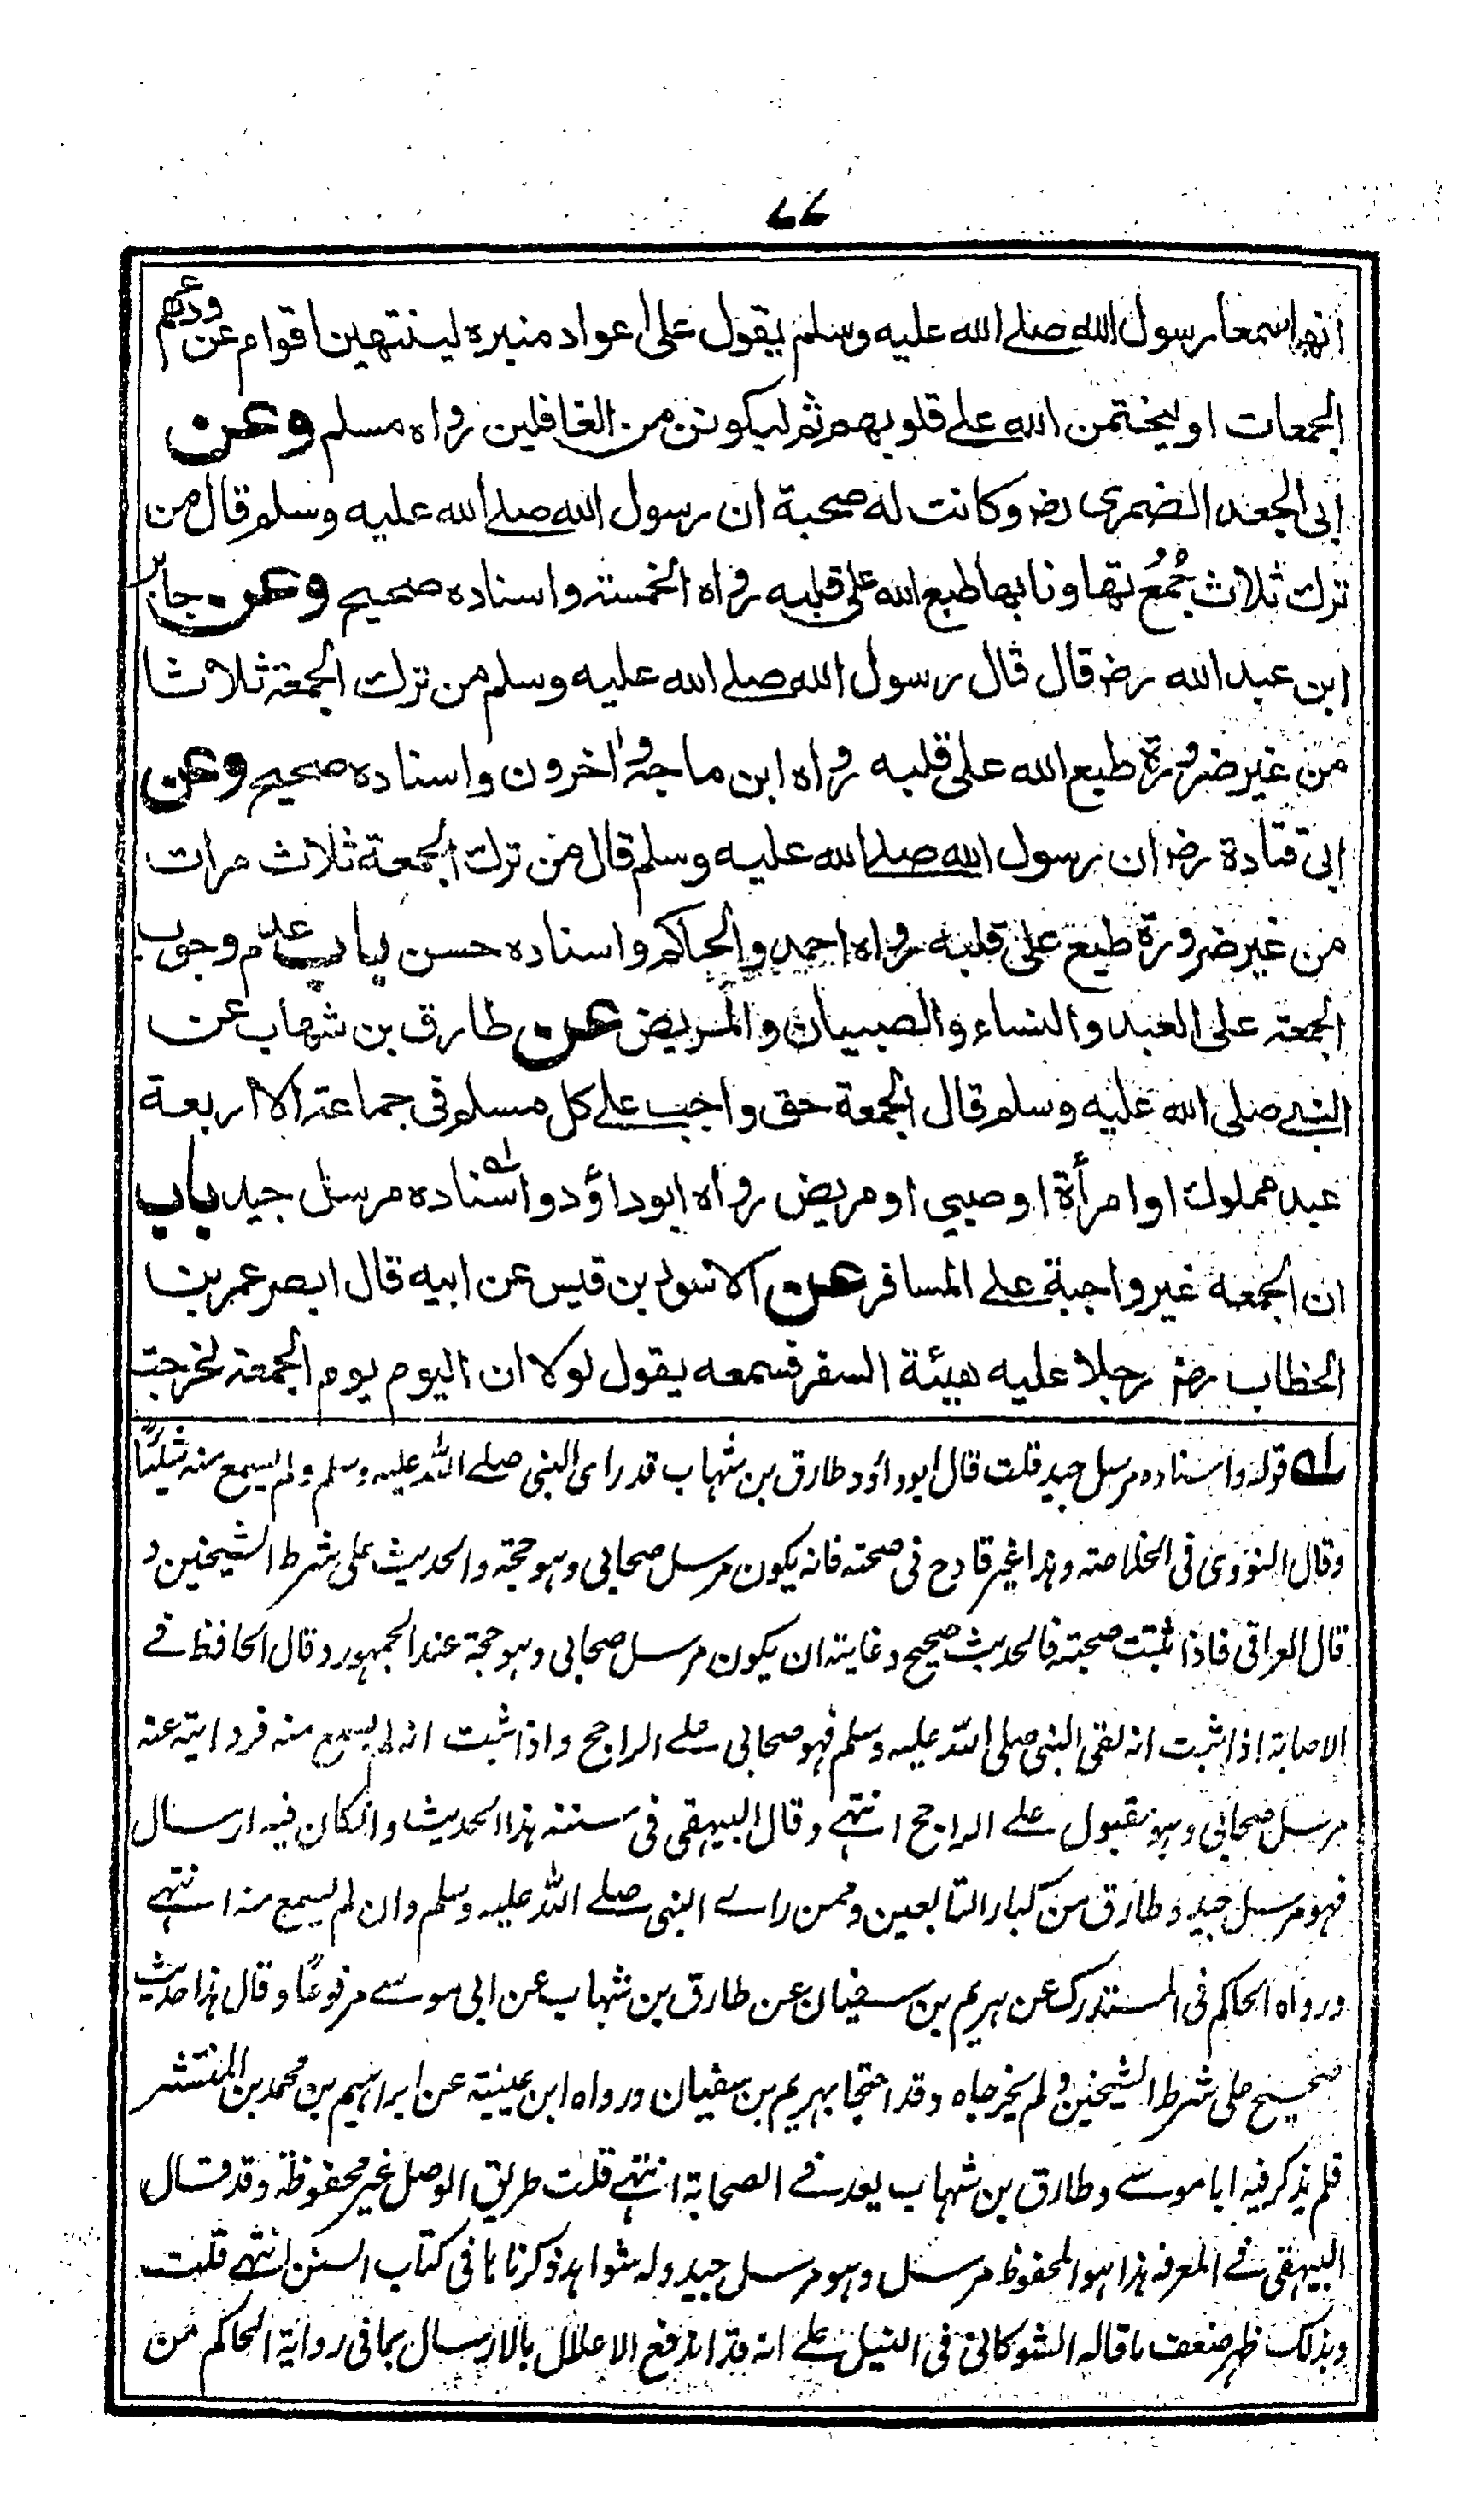 ٧٧
انهما سمعا رسول الله صلے الله عليه وسلم يقول على اعواد منبره لينتهين اقوام عن ودعهم
الجمعات او ليختمن الله علے قلوبهم ثم ليكونن من الغافلين رواه مسلم وعن
ابى الجعد الضمرى رضـ وكانت له صحبة ان رسول الله صلے الله عليه وسلم قال من
ترك ثلاث جُمُعٍ تهاونا بها طبع الله على قلبه رواه الخمسة واسناده صحيح وعن جابر
ابن عبد الله رضـ قال قال رسول الله صلے الله عليه وسلم من ترك الجمعة ثلاثا
من غير ضرورة طبع الله على قلبه رواه ابن ماجة واخرون واسناده صحيح وعن
ابى قتادة رضـ ان رسول الله صلے الله عليه وسلم قال من ترك الجمعة ثلاث مرات
من غير ضرورة طبع على قلبه رواه احمد والحاكم واسناده حسن باب عدم وجوب
الجمعة على العبد والنساء والصبيان والمريض عن طارق بن شهاب عن
النبے صلى الله عليه وسلم قال الجمعة حق واجب علے كل مسلم فى جماعة الا اربعة
عبد مملوك او امرأة او صبي او مريض رواه ابوداؤد واسناده ۱ه مرسل جيد باب
ان الجمعة غير واجبة علے المسافر عن الاسود بن قيس عن ابيه قال ابصر عمر بن
الخطاب رضـ رجلا عليه هيئة السفر فسمعه يقول لولا ان اليوم يوم الجمعة لخرجت
۱ه قوله واسناده مرسل جيد قلت قال ابوداؤد طارق بن شهاب قد راى النبى صلے الله عليه وسلم ولم يسمع منه شيئًا
وقال النووى فى الخلاصة وهذا غير قادح فى صحته فانه يكون مرسل صحابى وهو حجة والحديث على شرط الشيخين و
قال العراقى فاذا ثبتت صحبته فالحديث صحيح وغايته ان يكون مرسل صحابى وهو حجة عند الجمهور وقال الحافظ فے
الاصابة اذا ثبت انه لقى النبى صلى الله عليه وسلم فهو صحابى علے الراجح واذا ثبت انه لم يسمع منه فروايته عنه
مرسل صحابى وهو مقبول علے الراجح انتهے وقال البيهقى فى سننه هذا الحديث وان كان فيه ارسال
فهو مرسل جيد وطارق من كبار التابعين وممن راے النبى صلے الله عليه وسلم وان لم يسمع منه انتهے
ورواه الحاكم فى المستدرك عن هريم بن سفيان عن طارق بن شهاب عن ابى موسے مرفوعًا وقال هذا حديث
صحيح على شرط الشيخين ولم يخرجاه وقد احتجا بهريم بن سفيان ورواه ابن عيينة عن ابراهيم بن محمد بن المنتشر
فلم يذكر فيه ابا موسے وطارق بن شهاب يعد فے الصحابة انتهے قلت طريق الوصل غير محفوظة وقد قال
البيهقى فے المعرفة هذا هو المحفوظ مرسل وهو مرسل جيد وله شواهد ذكرناها فى كتاب السنن انتهے قلت
وبذلك ظهر ضعف ما قاله الشوكانى فى النيل علے انه قد اندفع الاعلال بالارسال بما فى رواية الحاكم من